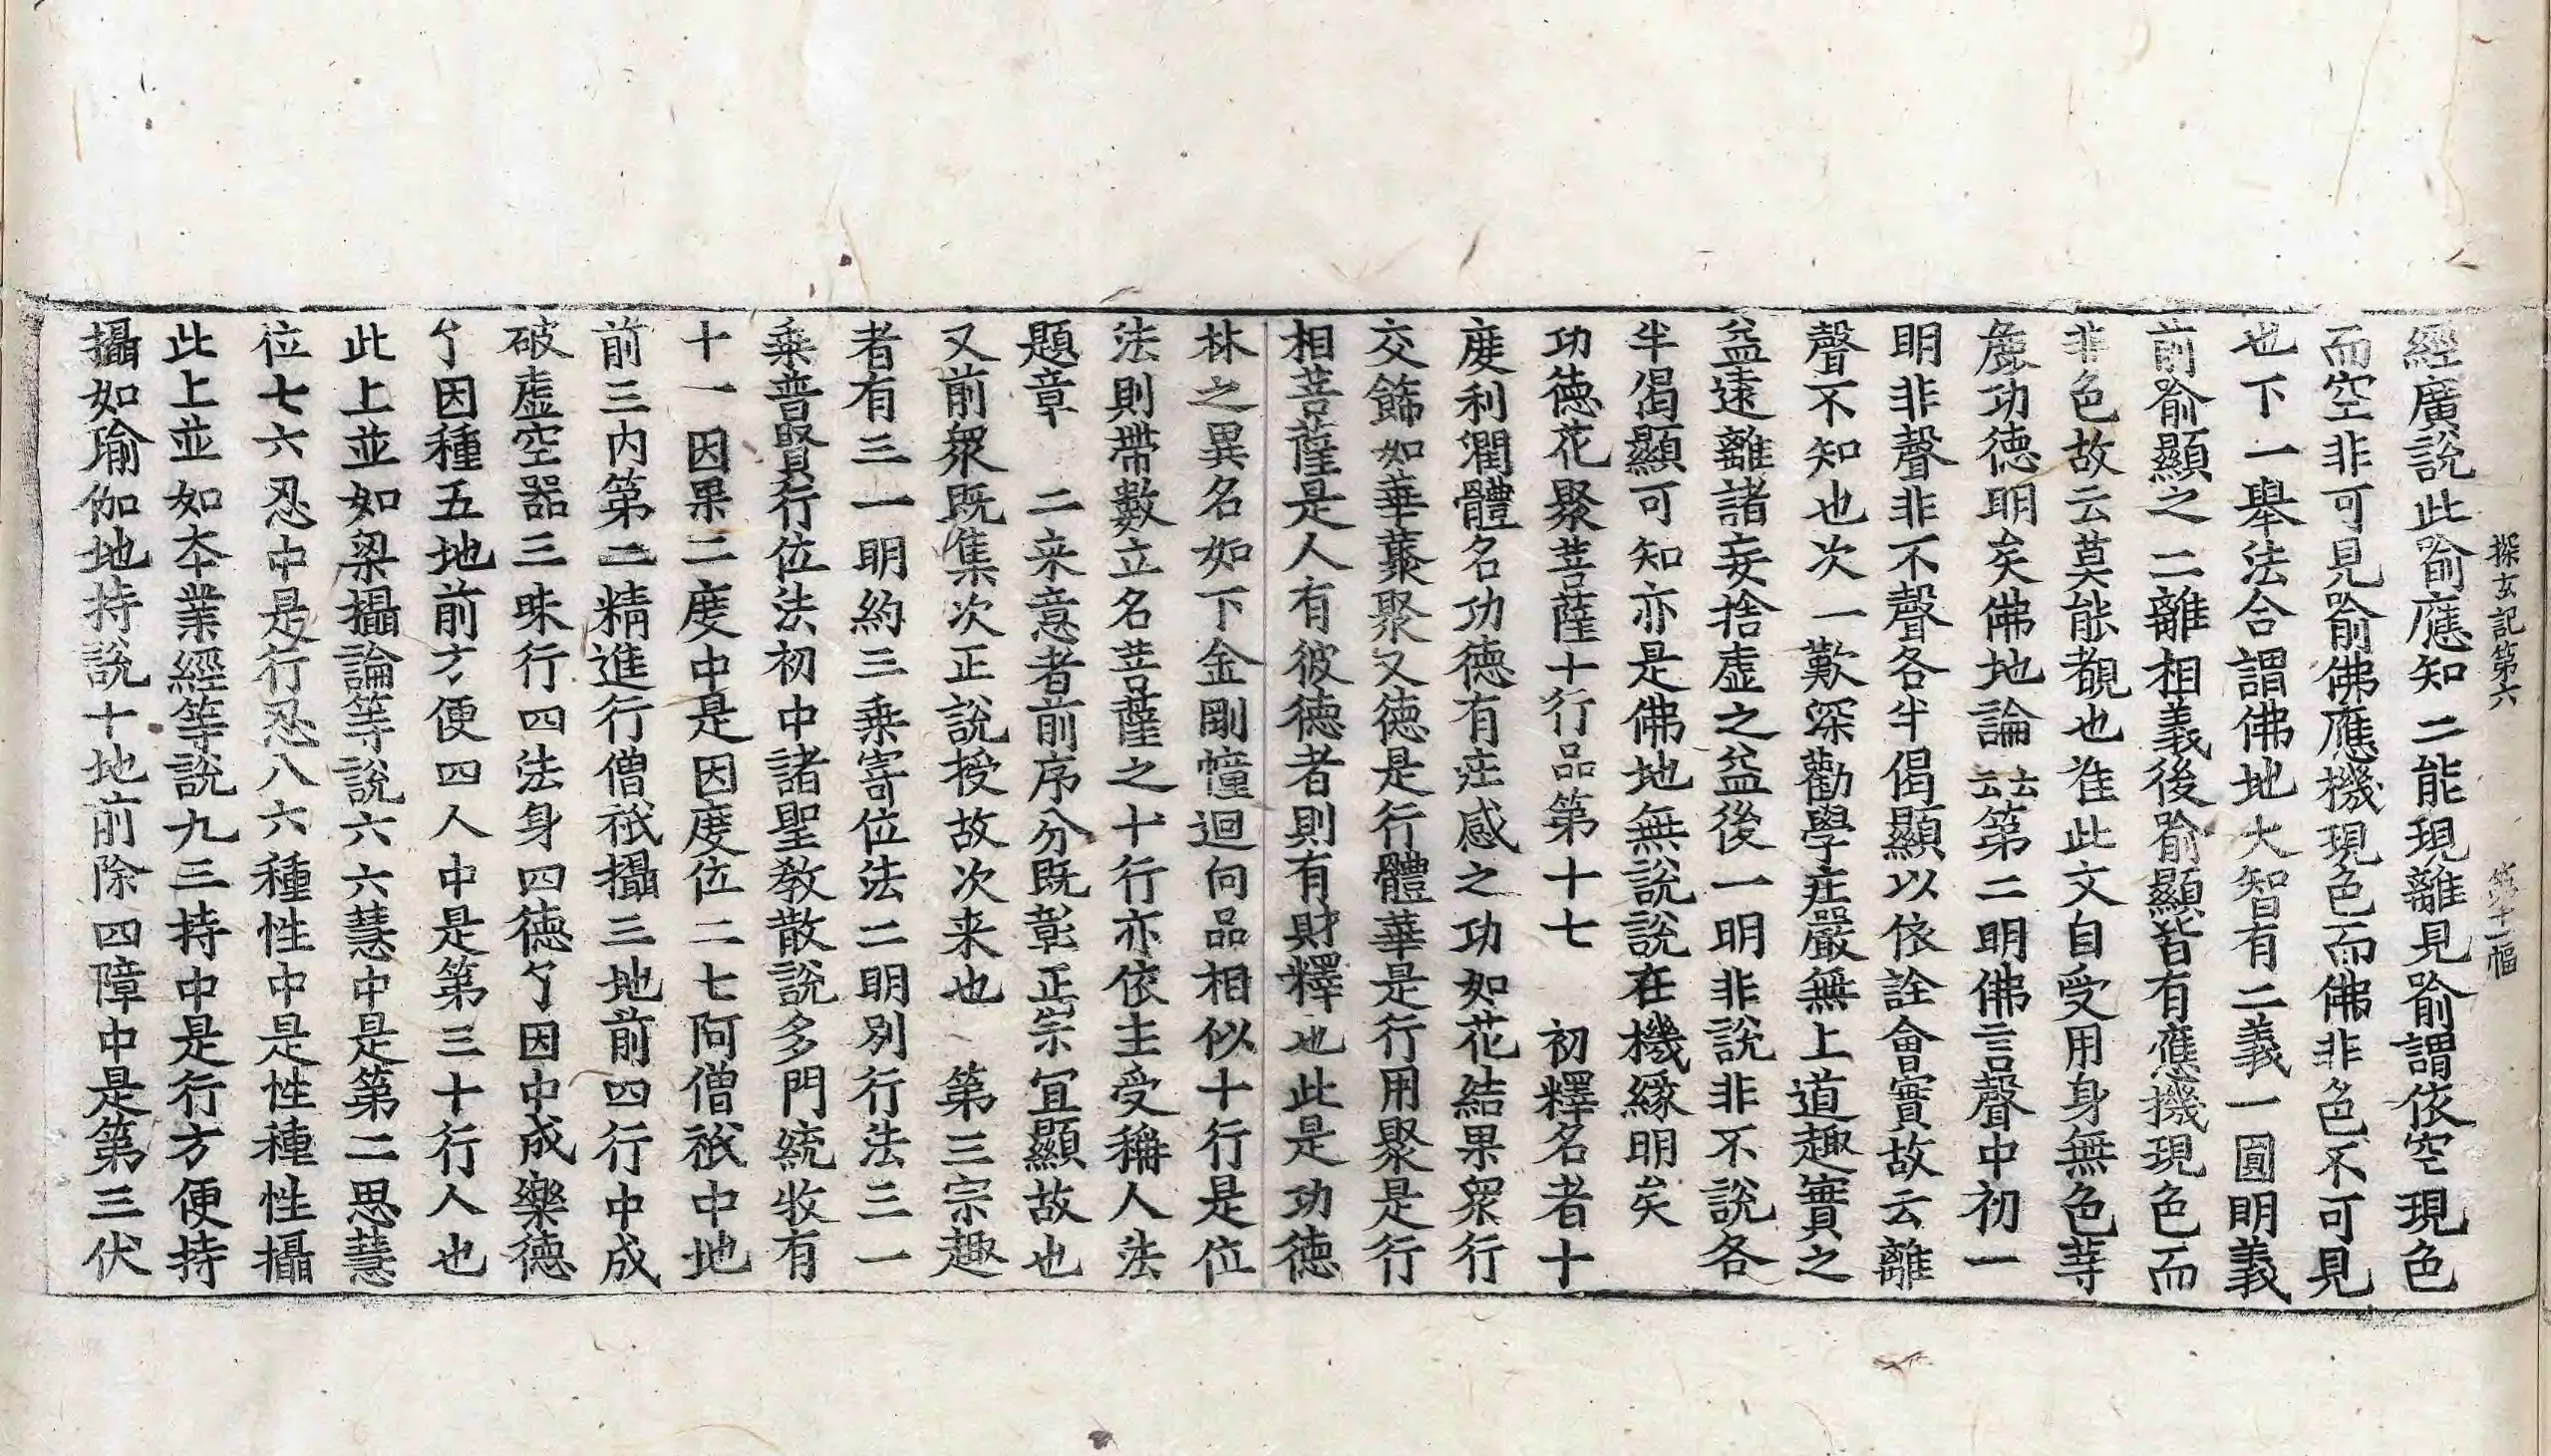 探玄記第六 第十一幅
經廣說此喻應知二能現離見喻謂依空現色
而空非可見喻佛應機現色而佛非色不可見
也下一舉法合謂佛地大智有二義一圓明義
前喻顯之二離相義後喻顯皆有應機現色而
非色故云莫能覩也准此文自受用身無色等
麁功德明矣佛地論云云第二明佛言聲中初一
明非聲非不聲各半偈顯以依詮會實故云離
聲不知也次一歎深勸學庄嚴無上道趣實之
益遠離諸妄捨虛之益後一明非說非不說各
半偈顯可知亦是佛地無說說在機緣明矣
功德花聚菩薩十行品第十七 初釋名者十
度利潤體名功德有庄感之功如花結果衆行
交飾如華藂聚又德是行體華是行用聚是行
相菩薩是人有彼德者則有財釋也此是功德
林之異名如下金剛幢迴向品相似十行是位
法則帶數立名菩薩之十行亦依主受稱人法
題章 二来意者前序分既彰正宗宜顯故也
又前衆既集次正說授故次来也 第三宗趣
者有三一明約三乗寄位法二明別行法三一
乗普賢行位法初中諸聖教散說多門統收有
十一因果二度中是因度位二七阿僧祇中地
前三內第二精進行僧祇攝三地前四行中成
破虛空器三昧行四法身四德𠂉因中成樂德
𠂉因種五地前方便四人中是第三十行人也
此上並如梁攝論等說六六慧中是第二思慧
位七六忍中是行忍八六種性中是性種性攝
此上並如夲業經等說九三持中是行方便持
攝如瑜伽地持說十地前除四障中是第三伏